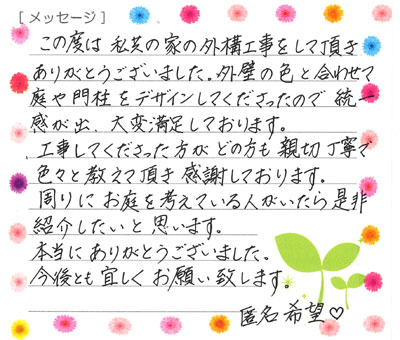 [メッセージ]
この度は私共の家の外構工事をして頂き
ありがとうございました。外壁の色と合わせて
庭や門柱をデザインしてくださったので統一
感が出、大変満足しております。
工事してくださった方がどの方も親切丁寧で
色々と教えて頂き感謝しております。
周りにお庭を考えている人がいたら是非
紹介したいと思います。
本当にありがとうございました。
今後とも宜しくお願い致します。
匿名希望♡